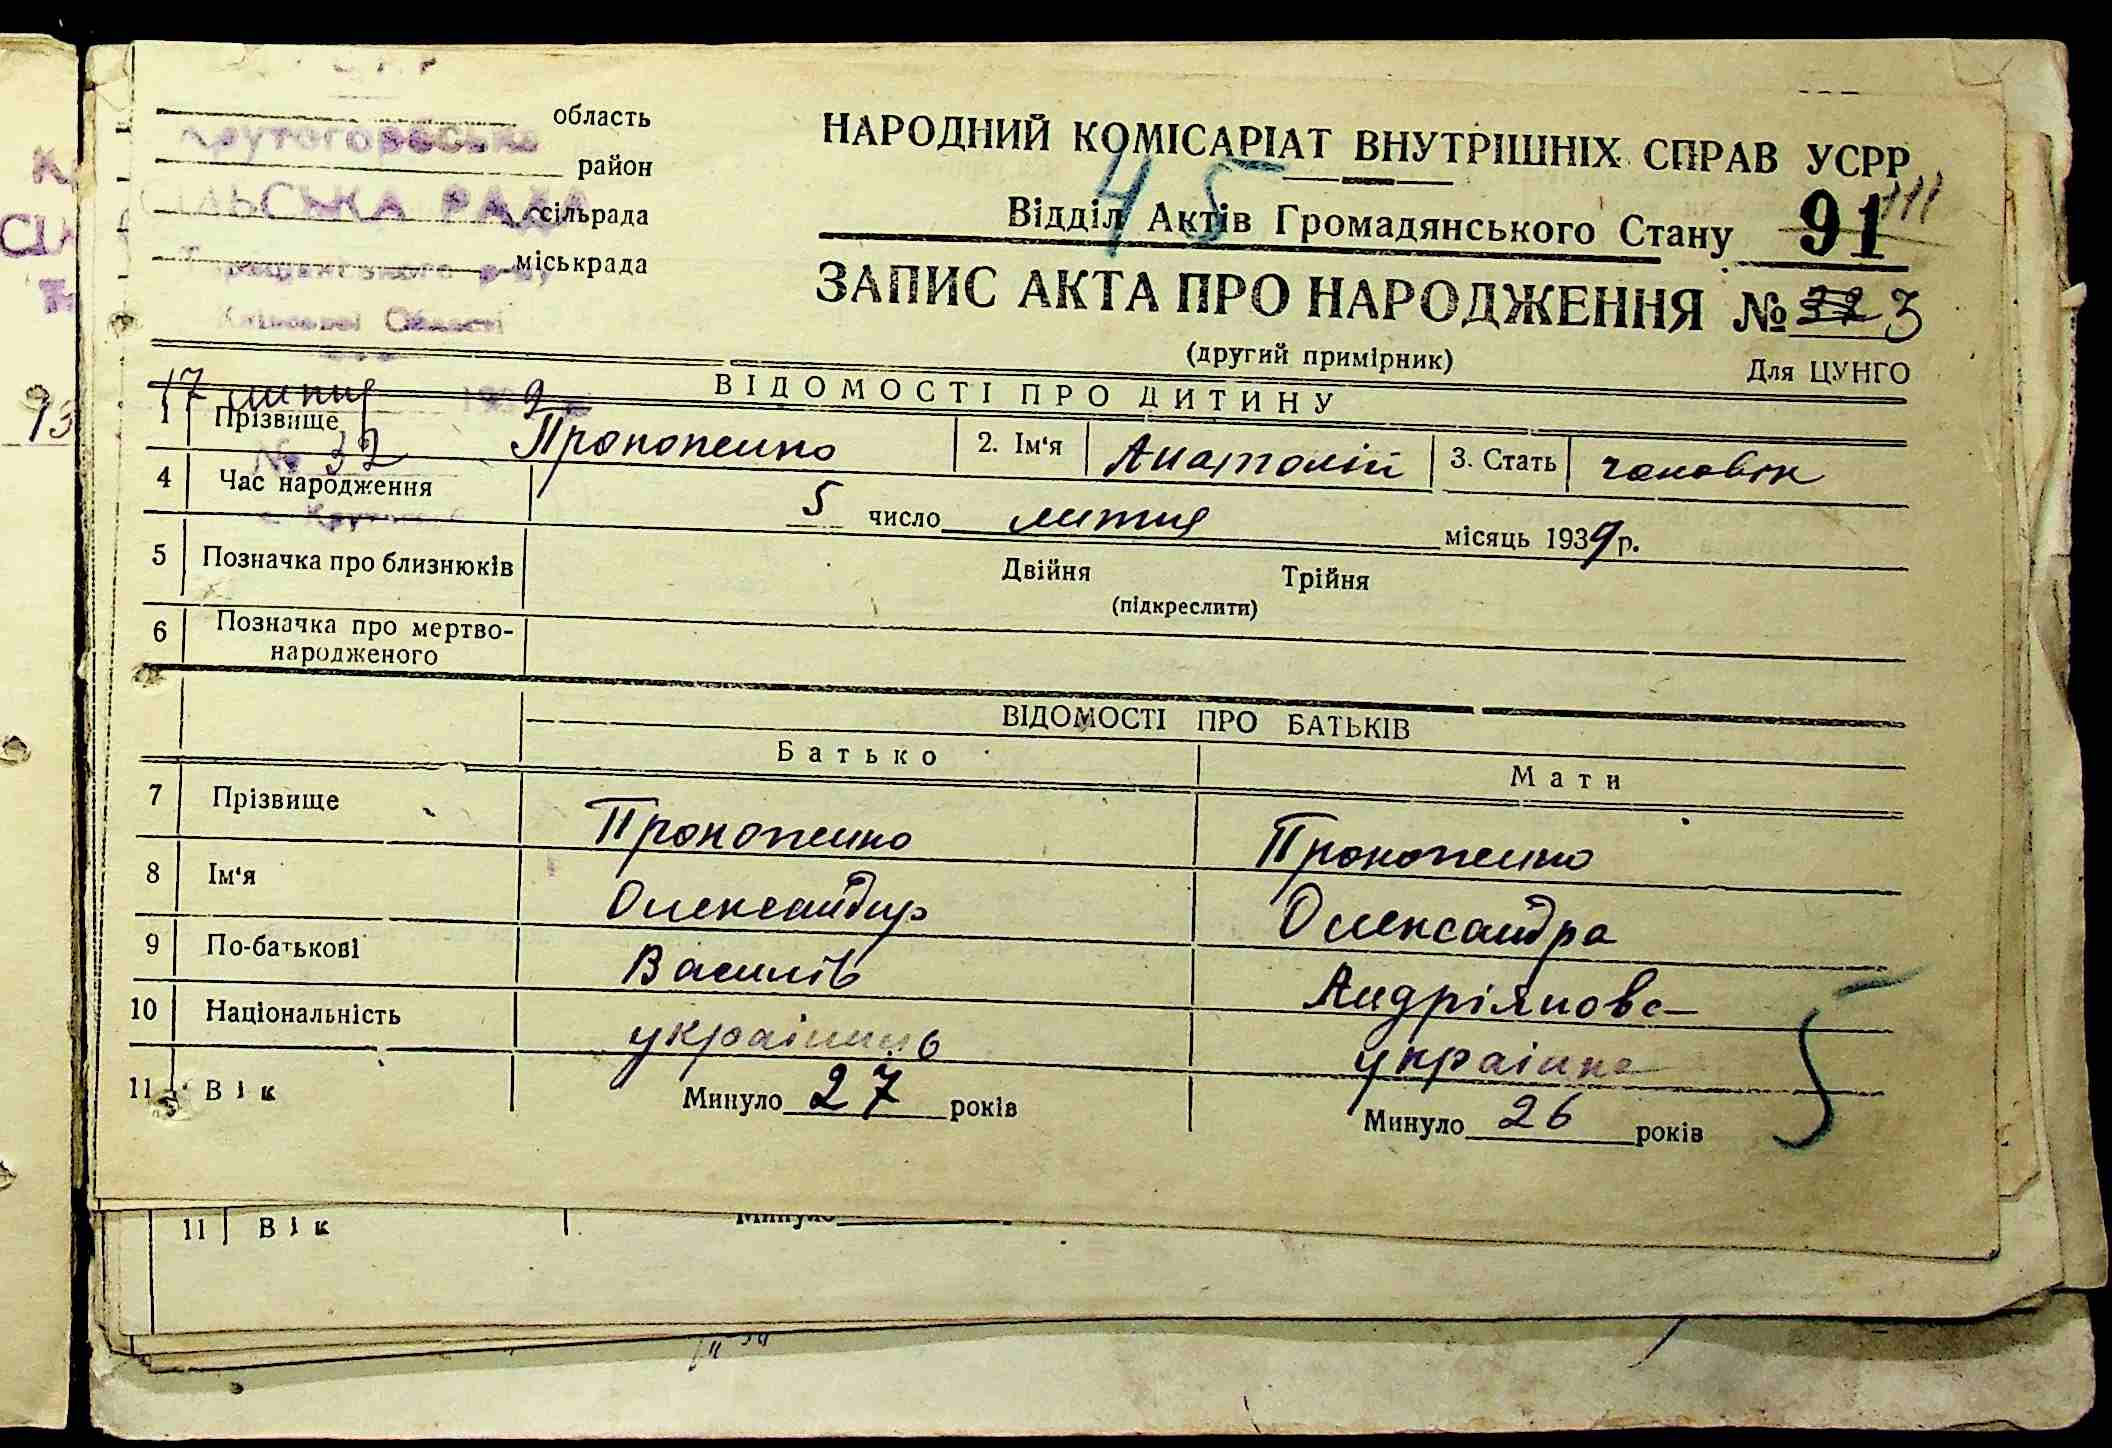 область
Крутогорська
район
СІЛЬСЬКА РАДА
сільрада
міськрада
Київської Області
НАРОДНИЙ КОМІСАРІАТ ВНУТРІШНІХ СПРАВ УСРР
45
Відділ Актів Громадянського Стану 91
ЗАПИС АКТА ПРО НАРОДЖЕННЯ № 32 3
(другий примірник) Для ЦУНГО
17 липня 1939
№ 32
ВІДОМОСТІ ПРО ДИТИНУ
1 Прізвище Прокопенко 2. Ім'я Анатолій 3. Стать чоловік
4 Час народження 5 число липня місяць 1939 р.
5 Позначка про близнюків Двійня Трійня
(підкреслити)
6 Позначка про мертво-
народженого
ВІДОМОСТІ ПРО БАТЬКІВ
Батько Мати
7 Прізвище Прокопенко Прокопенко
8 Ім'я Олександр Олександра
9 По-батькові Василів Андріянова
10 Національність українець українка
11 Вік Минуло 27 років Минуло 26 років
5
11 Вік Минуло
93